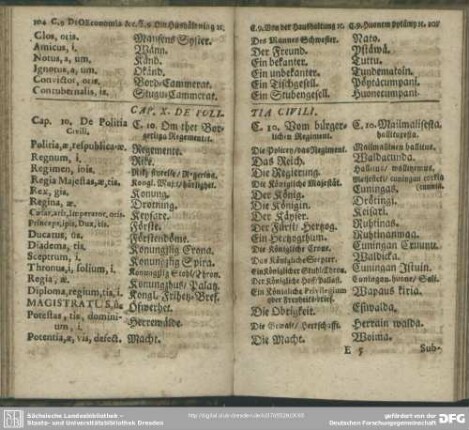 104 C.9 De Œconomia &c. C.9. Om Hushåldning ꝛc.
Glos, oris. Mansens Syster.
Amicus, i. Wänn.
Notus, a, um. Känd.
Ignotus, a, um. Okänd.
Convictor, oris. Bord-Cammerat.
Contubernalis, is. Stugu-Cammerat.
CAP. X. DE POLI-
Cap. 10. De Politia C. 10. Om thet Bor-
Civili. gerliga Regementet.
Politia, æ, respublica. Regemente.
Regnum, i. Rike.
Regimen, inis. Rikz styrelse / Regering.
Regia Majestas, æ, tis. Kongl. Mayt/ härlighet.
Rex, gis. Konung.
Regina, æ. Drotning.
Cæsar, aris, Imperator, oris. Keysare.
Princeps, ipis, Dux, cis. Förste.
Ducatus, ûs. Förstendöme.
Diadema, tis. Konungslig Crona.
Sceptrum, i. Konungslig Spira.
Thronus, i, solium, i. Konungslig Stohl/ Thron.
Regia, æ. Konungzhus/ Palatz.
Diploma, regium, tis, i. Kongl. Frihetz-Bref.
MAGISTRATUS, ûs Öfwerhet.
Potestas, tis, domini- Herrewälde.
um, i.
Potentia, æ, vis, defect. Macht.
C.9. Von der Haushaltung ꝛc. C.9. Huonen pytämy ꝛc. 105
Des Mannes Schwester. Nato.
Der Freund. Ystäwä.
Ein bekanter. Tuttu.
Ein unbekanter. Tundematoin.
Ein Tischgesell. Pöytäcumpani.
Ein Stubengesell. Huonecumpani.
TIA CIVILI.
C. 10. Vom bürger- C. 10. Mailmalisesta
lichen Regiment. hallituxesta.
Die Policey/ das Regiment. Mailmalinen hallitus.
Das Reich. Waldacunda.
Die Regierung. Hallitus/
Die Königliche Majestät.
Der König. Cuningas.
Die Königin. Drötingi.
Der Käyser. Keisari.
Der Fürst/ Hertzog. Ruhtinas.
Ein Hertzogthum. Ruhtinanmaa.
Die Königliche Cron. Cuningan Cruunu.
Das Königliche Scepter. Waldicka.
Ein Königlicher Stuhl/ Thron. Cuningan Istuin.
Der Königliche Hof/ Pallast. Cuningan huone/ Sali.
Ein Königliche Privilegium Wapaus kiria.
oder Freyheits-brief.
Die Obrigkeit. Esiwalda.
Die Gewalt/ Herrschafft. Herrain walda.
Die Macht. Woima.
E 5 Sub-
Sächsische Landesbibliothek –
Staats- und Universitätsbibliothek Dresden
gefördert von der
Deutschen Forschungsgemeinschaft
DFG